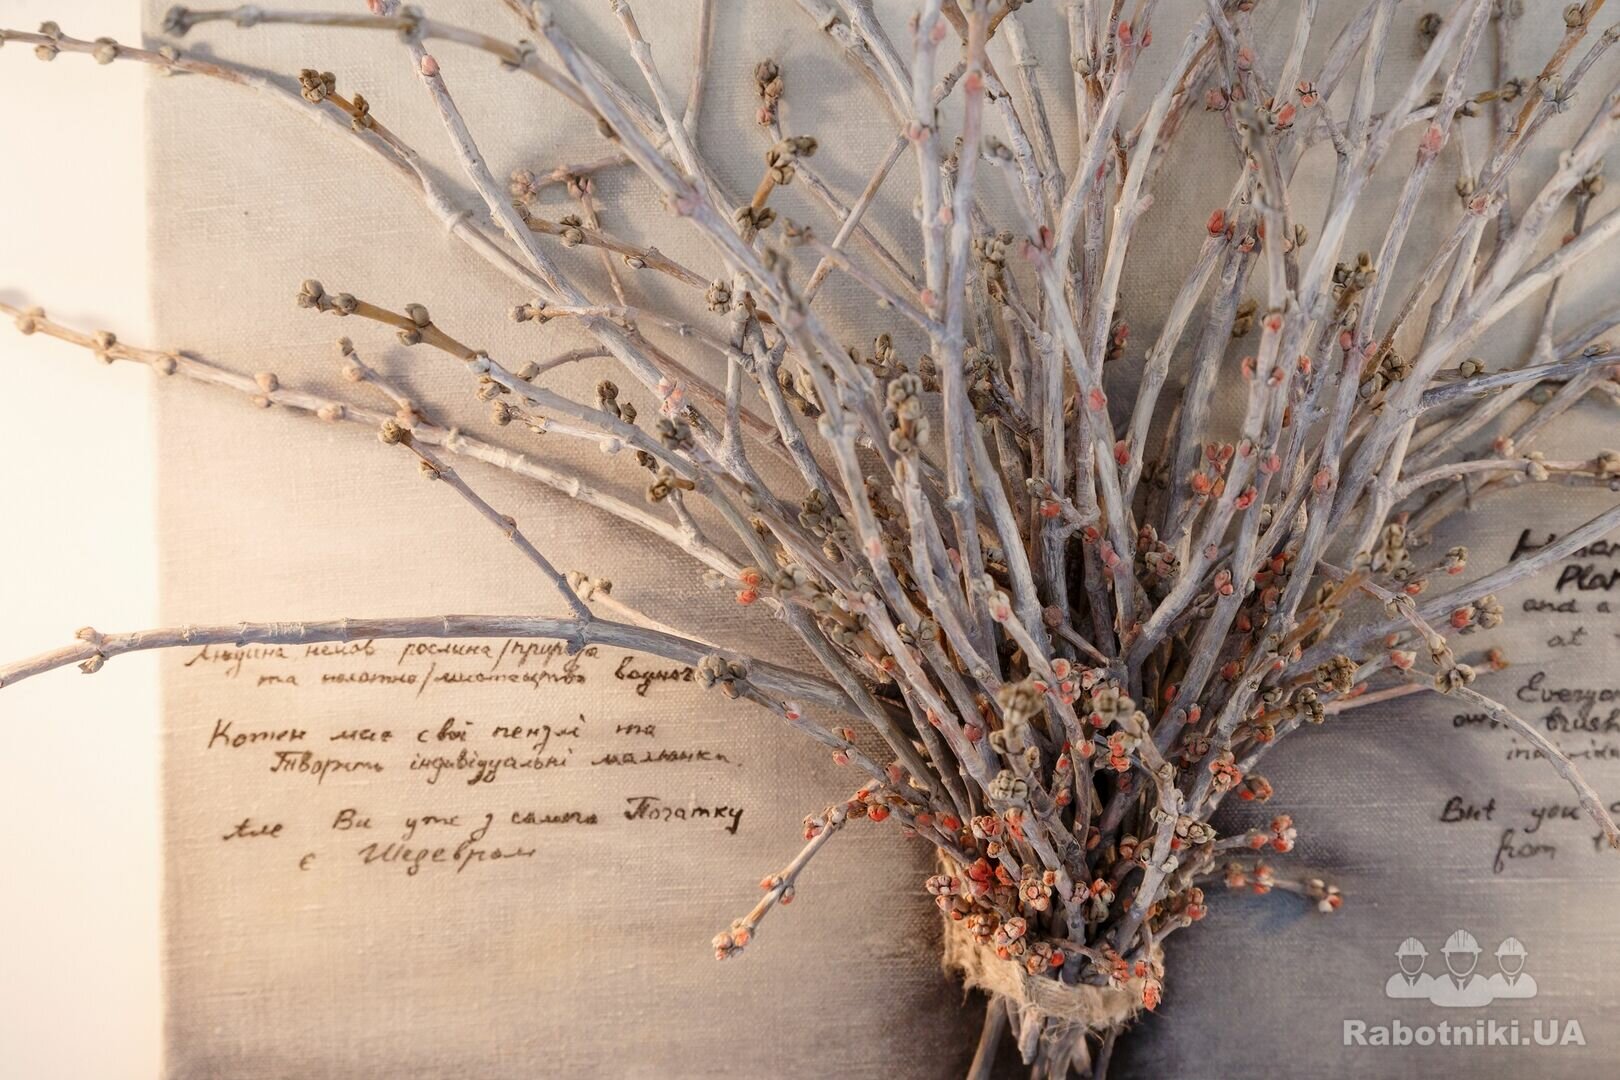 Людина немов рослина/природа
та полотно/мистецтво водночас
Кожен має свої пензлі та
Творить індивідуальні малюнки.
Але Ви уже з самого Початку
є Шедевром
and a
at
own brush
But you
from
Rabotniki.UA